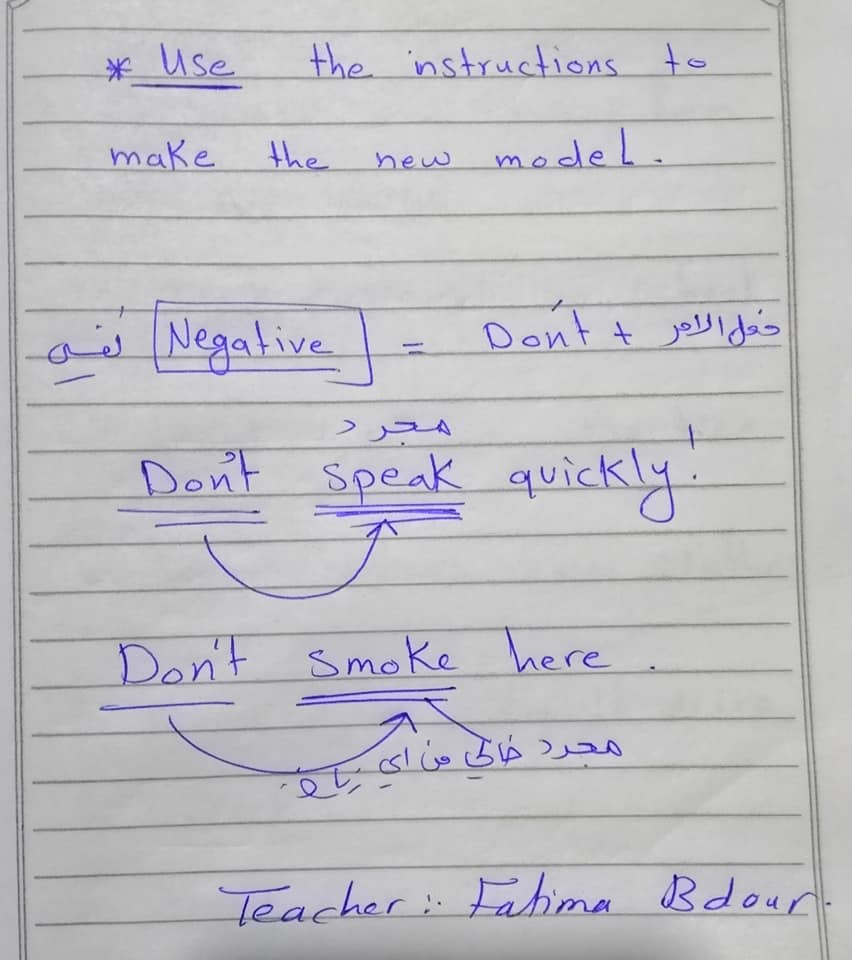 * Use the instructions to
make the new model.
نفي Negative = Don't + فعل الامر
مجرد
Don't speak quickly!
Don't smoke here.
مجرد خالي من اي زيادة
Teacher: Fatima Bdour.